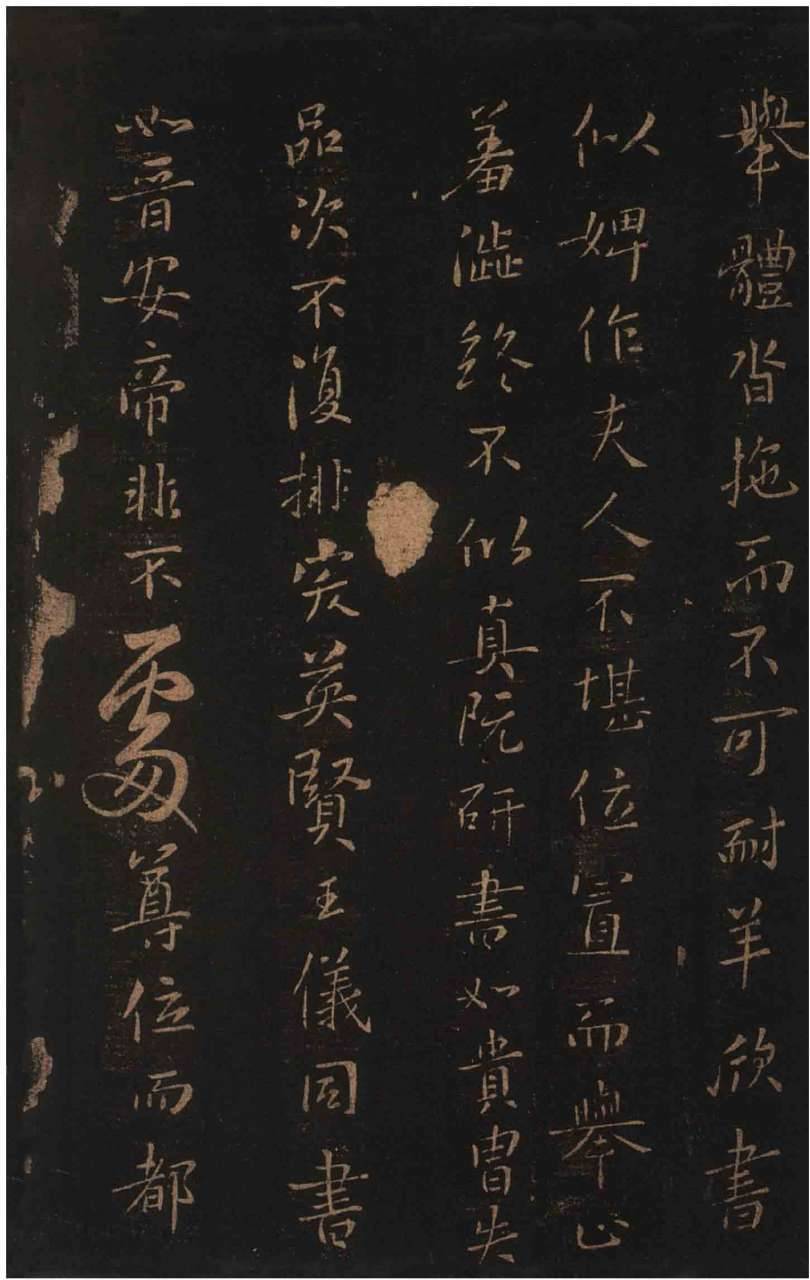 舉體沓拖而不可耐羊欣書
似婢作夫人不堪位置而舉止
羞澁終不似真阮研書如貴胄失
品次不復排突英賢王儀同書
如晋安帝非不處尊位而都